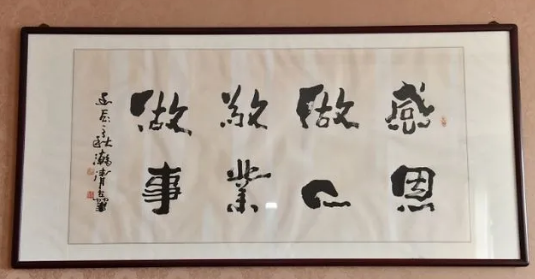 感恩
做人
敬業
做事